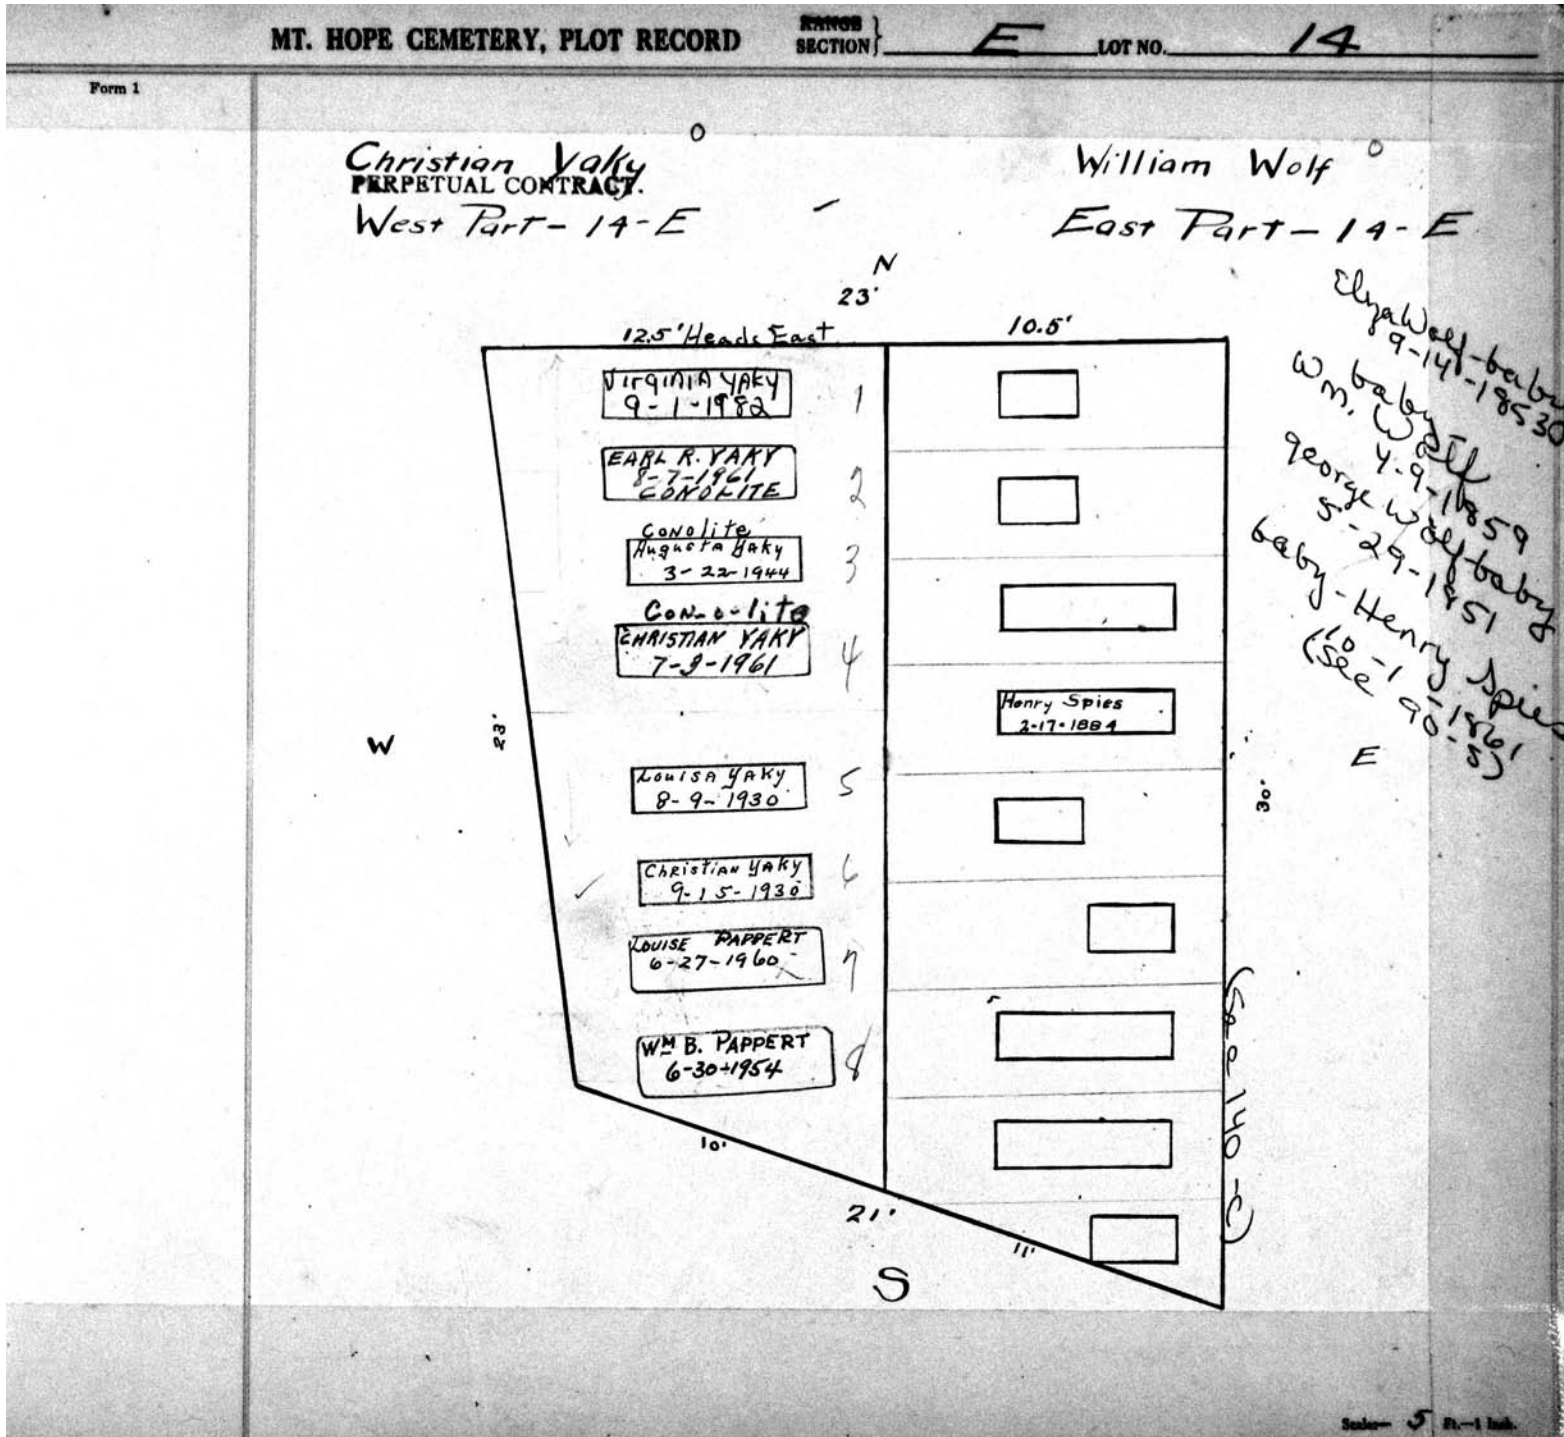 MT. HOPE CEMETERY, PLOT RECORD
RANGE
SECTION } E LOT NO. 14
Form 1
Christian Yaky
PERPETUAL CONTRACT.
West Part - 14-E
William Wolf
East Part - 14-E
N
23'
12.5' Heads East
10.5'
VIRGINIA YAKY
9-1-1982
1
EARL R. YAKY
8-7-1961
CONOLITE
2
Conolite
Augusta Yaky
3-22-1944
3
Con-o-lite
CHRISTIAN YAKY
7-3-1961
4
Louisa Yaky
8-9-1930
5
Christian Yaky
9-15-1930
6
LOUISE PAPPERT
6-27-1960
7
WM B. PAPPERT
6-30-1954
8
Henry Spies
2-17-1884
W
23'
E
30'
10'
21'
11'
S
Elyza Wolf-baby
9-14-1853
baby
Wm. Wolf
4-9-1859
george Wolf baby
5-29-1851
baby-Henry Spies
10-1-1861
(See 90-S)
(See 140-C)
Scale— 5 Ft.—1 Inch.